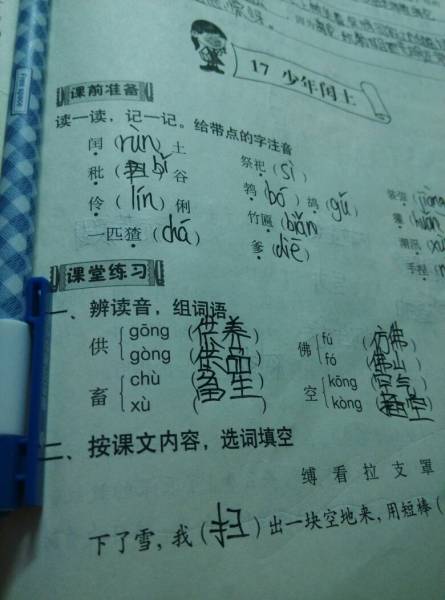 17 少年闰土
课前准备
读一读，记一记。给带点的字注音
闰（rùn）土 祭祀（sì）
秕（bǐ）谷 鹁（bó）鸪（gū）
伶（lín）俐 竹匾（biǎn）
一匹猹（chá） 爹（diē）
课堂练习
一、辨读音，组词语
供 gōng（供养） 佛 fú（仿佛）
gòng（供品） fó（佛山）
畜 chù（畜生） 空 kōng（空气）
xù（ ） kòng（
二、按课文内容，选词填空
缚 看 拉 支 罩
下了雪，我（扫）出一块空地来，用短棒（